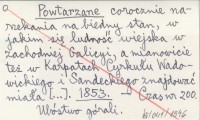 Powtarzane corocznie na-
rzekania na biedny stan, w
jakim się ludność wiejska w
zachodniej Galicyi, a mianowicie
też w Karpatach Cyrkułu Wado-
wickiego i Sandeckiego znajdować
miała [...]. 1853. Czas nr 200.
Ubóstwo górali.